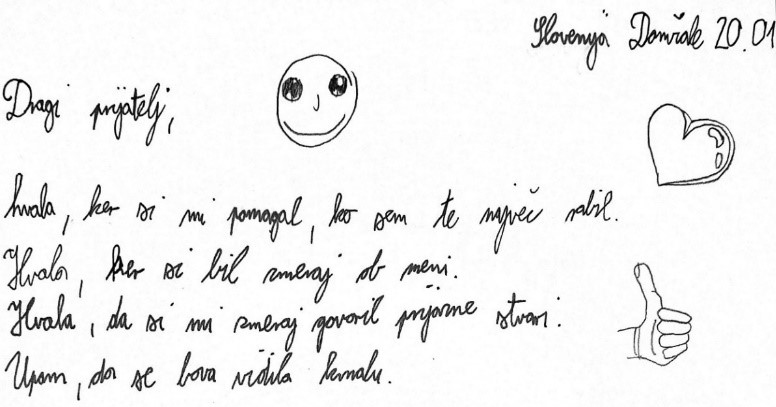 Slovenija Domžale 20.01
Dragi prijatelj,
hvala, ker si mi pomagal, ko sem te največ rabil.
Hvala, ker si bil zmeraj ob meni.
Hvala, da si mi zmeraj govoril prijazne stvari.
Upam, da se bova vidila kmalu.